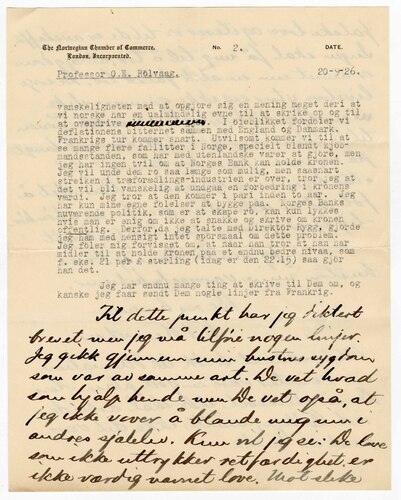 The Norwegian Chamber of Commerce,
London, Incorporated.
No. 2.
DATE.
Professor O.E. Rölvaag.
20-9-26.
vanskeligheten med at opgjøre sig en mening meget deri at
vi norske har en ualmindelig evne til at skrike op og til
at overdrive. I øieblikket fordøier vi
deflationens bitterhet sammen med England og Danmark.
Frankrigs tur kommer snart. Utvilsomt kommer vi til at
se mange flere fallitter i Norge, specielt blandt kjøb-
mandsstanden, som har med utenlandske varer at gjøre, men
jeg har ingen tvil om at Norges Bank kan holde kronen.
Jeg vil unde dem ro saa længe som mulig, men saasnart
streiken i traforædlings-industrien er over, tror jeg at
det vil bli vanskelig at undgaa en forbedring i kronens
værdi. Jeg tror at den kommer i pari inden to aar. Jeg
har kun mine egne følelser at bygge paa. Norges Banks
nuværende politik, som er at skape ro, kan kun lykkes
hvis man er enig om ikke at snakke og skrive om kronen
offentlig. Derfor, da jeg talte med Direktør Rygg, gjorde
jeg ham med mensigt intet spørsmaal om dette problem.
Jeg føler mig forvisset om, at naar han tror at han har
midler til at holde kronen paa et endnu bedre nivaa, som
f. eks. 21 per £ sterling (idag er den 22.15) saa gjør
han det.
Jeg har endnu mange ting at skrive til Dem om, og
kanske jeg faar sendt Dem nogle linjer fra Frankrig.
Til dette punkt har jeg diktert
brevet, men jeg må tilføie nogen linjer.
Jeg gikk gjennem min hustrus sygdom
som var av samme art. De vet hvad
som hjalp hende men De vet også, at
jeg ikke våver å blande mig inn i
andres sjæleliv. Kun vil jeg si: De love
som ikke uttrykker retfærdighet er
ikke værdig navnet love. Mot slike